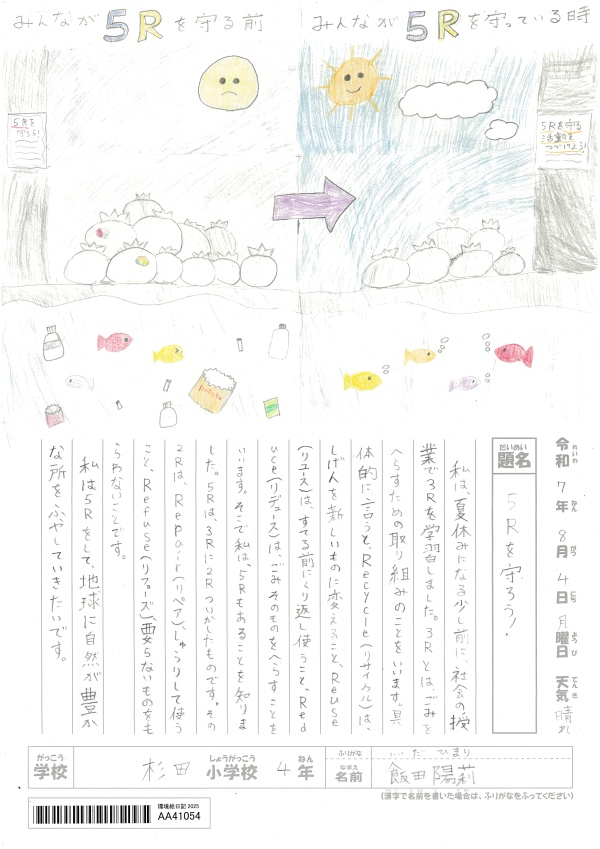 みんなが5Rを守る前
みんなが5Rを守っている時
5Rを
守ろう!
5Rを守る
活動を
つづけよう!
potato
令和7年8月4日月曜日 天気 晴れ
れいわ ねん がつ にち ようび てんき
だいめい
題名
5Rを守ろう!
私は、夏休みになる少し前に、社会の授
業で3Rを学習しました。3Rとは、ごみを
へらすための取り組みのことをいいます。具
体的に言うと、Recycle(リサイクル)は、
しげんを新しいものに変えること、Reuse
(リユース)は、すてる前にくり返し使うこと、Red
uce(リデュース)は、ごみそのものをへらすことを
いいます。そこで私は、5Rもあることを知りま
した。5Rは、3Rに2Rついかしたものです。その
2Rは、Repair(リペア)、しゅうりして使う
こと、Refuse(リフューズ)、要らないものをも
らわないことです。
私は5Rをして、地球に自然が豊か
な所をふやしていきたいです。
がっこう
学校
杉田
しょうがっこう
小学校
4
ねん
年
ふりがな
いいだ ひまり
なまえ
名前
飯田 陽莉
(漢字で名前を書いた場合は、ふりがなをふってください)
環境絵日記2025
AA41054